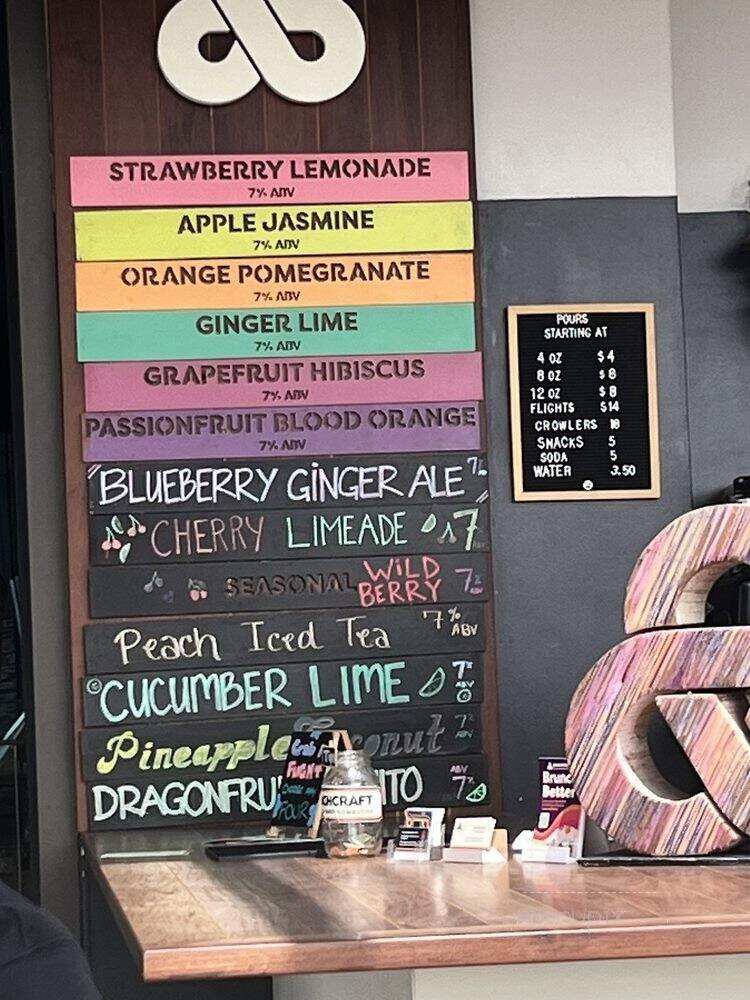 STRAWBERRY LEMONADE
7% ABV
APPLE JASMINE
7% ABV
ORANGE POMEGRANATE
7% ABV
GINGER LIME
7% ABV
GRAPEFRUIT HIBISCUS
7% ABV
PASSIONFRUIT BLOOD ORANGE
7% ABV
BLUEBERRY GINGER ALE 7%
CHERRY LIMEADE 7
SEASONAL WILD BERRY 7%
Peach Iced Tea 7% ABV
CUCUMBER LIME 7% ABV
Pineapple onut 7%
DRAGONFRU ITO ABV 7%
POURS
STARTING AT
4 OZ $4
8 OZ $8
12 OZ $8
FLIGHTS $14
CROWLERS 18
SNACKS 5
SODA 5
WATER 3.50
FLIGHT
FOUR
CHCRAFT
Brunc
Better